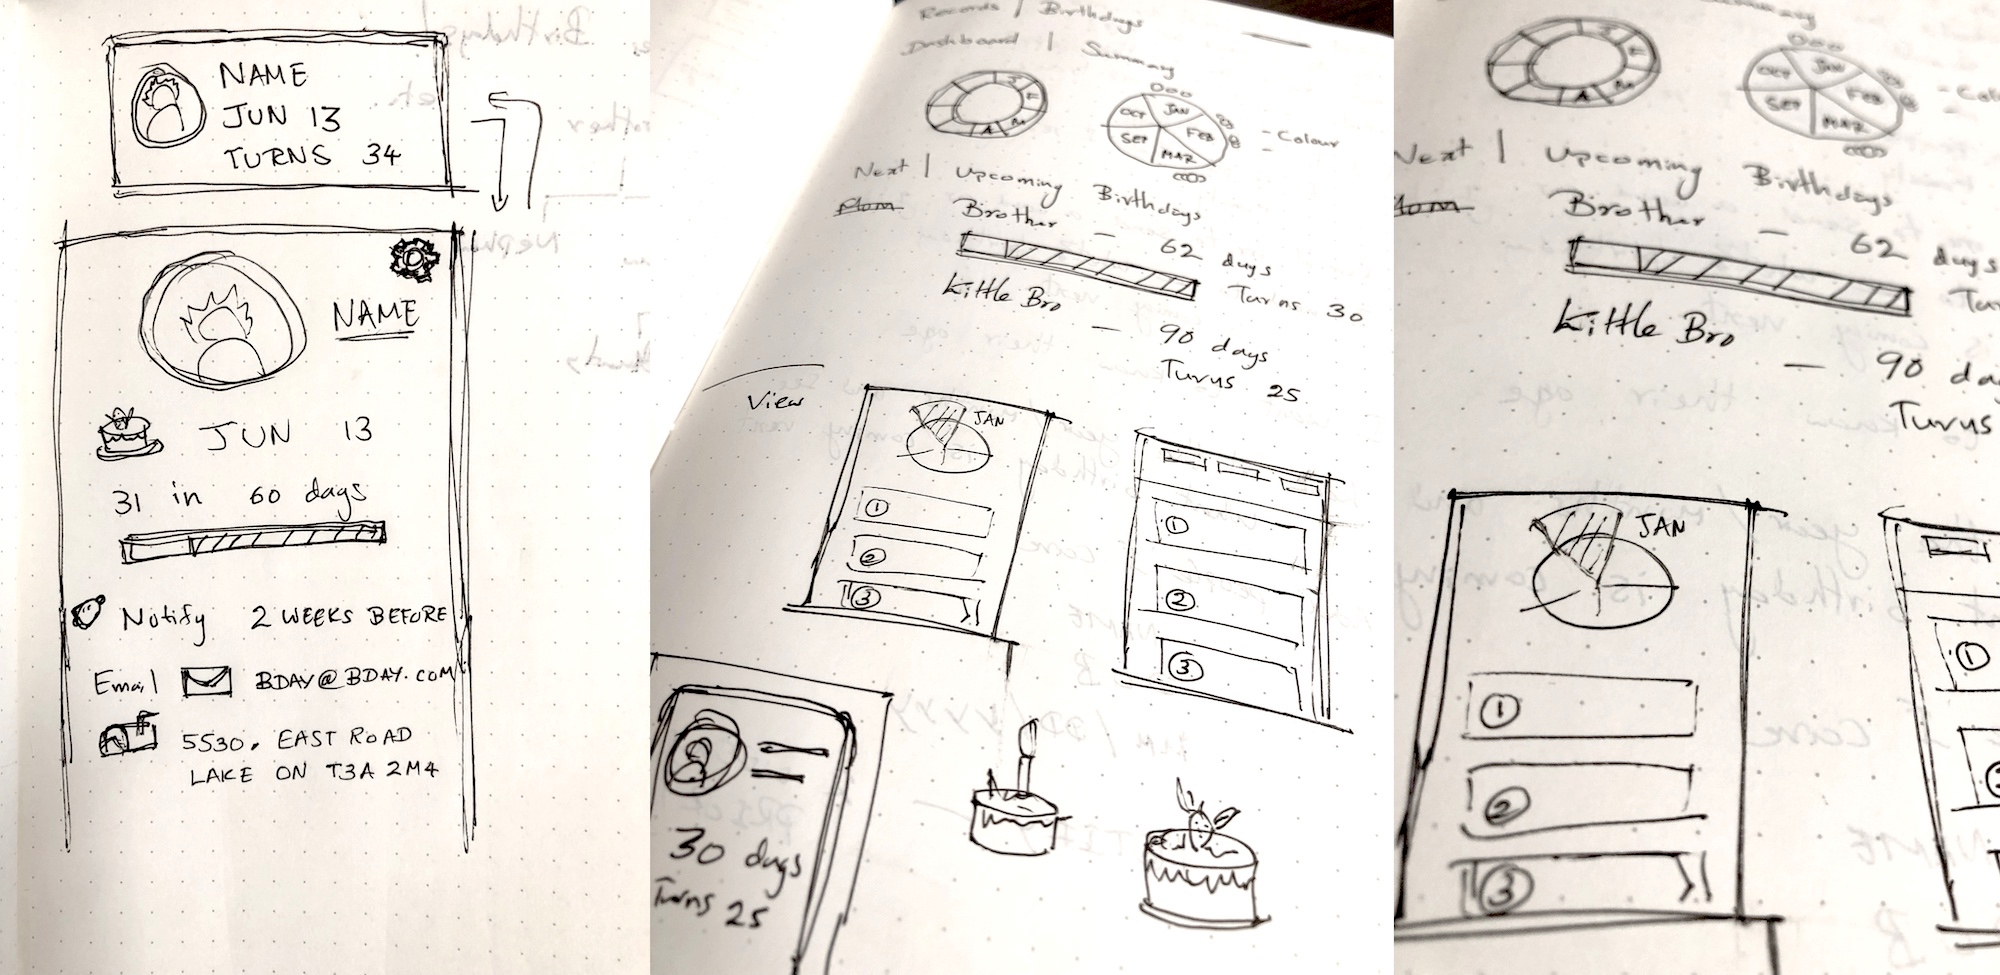 NAME
JUN 13
TURNS 34
NAME
JUN 13
31 in 60 days
Notify 2 WEEKS BEFORE
Email BDAY@BDAY.COM
5530. EAST ROAD
LAKE ON T3A 2M4
Records | Birthdays
Dashboard | Summary
J
F
M
A
JAN
FEB
MAR
SEP
OCT
- Colour
Next | Upcoming Birthdays
Mom Brother — 62 days
Turns 30
Little Bro — 90 days
Turns 25
View
JAN
1
2
3
1
2
3
30 days
Turns 25
Summary
J
F
M
A
JAN
FEB
MAR
SEP
OCT
- Colou
Next | Upcoming Birthdays
Mom Brother — 62 days
Tur
Little Bro — 90 da
Turns
JAN
1
2
3
1